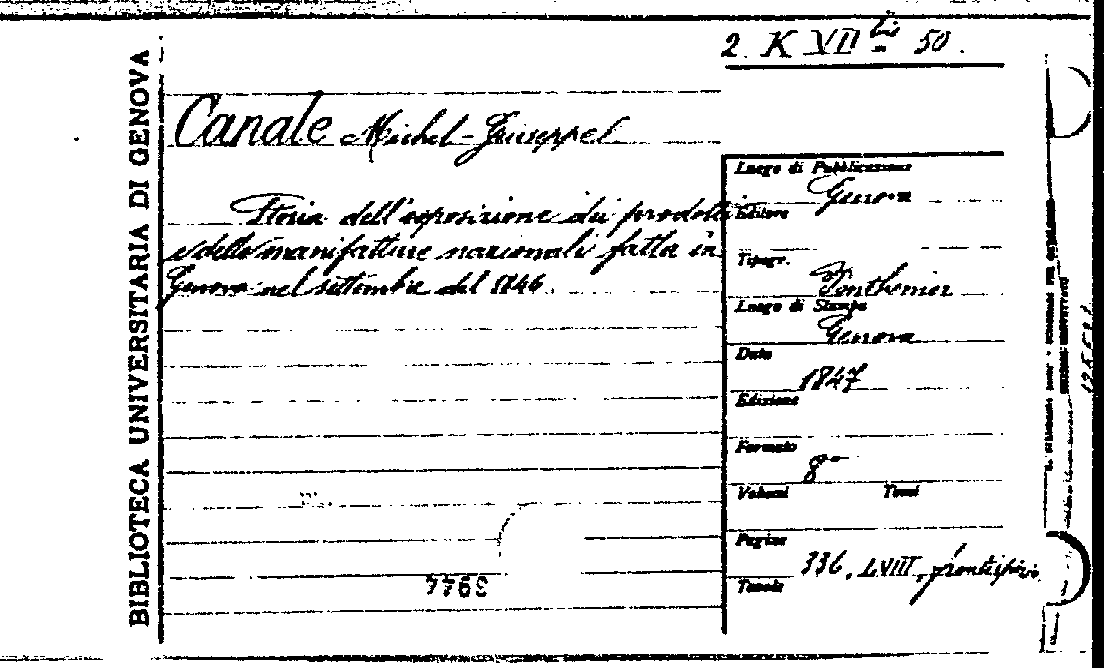 2 K VII bis 50.
BIBLIOTECA UNIVERSITARIA DI GENOVA
Canale Michel-Giuseppe
Storia dell'esposizione dei prodotti
e delle manifatture nazionali fatta in
Genova nel settembre del 1846.
Luogo di Pubblicazione
Genova
Editore
Tipogr.
Ponthenier
Luogo di Stampa
Genova
Data
1847
Edizione
Formato
8°
Volumi Tomi
Pagine
336, LVIII, frontispizio
Tavole
3944